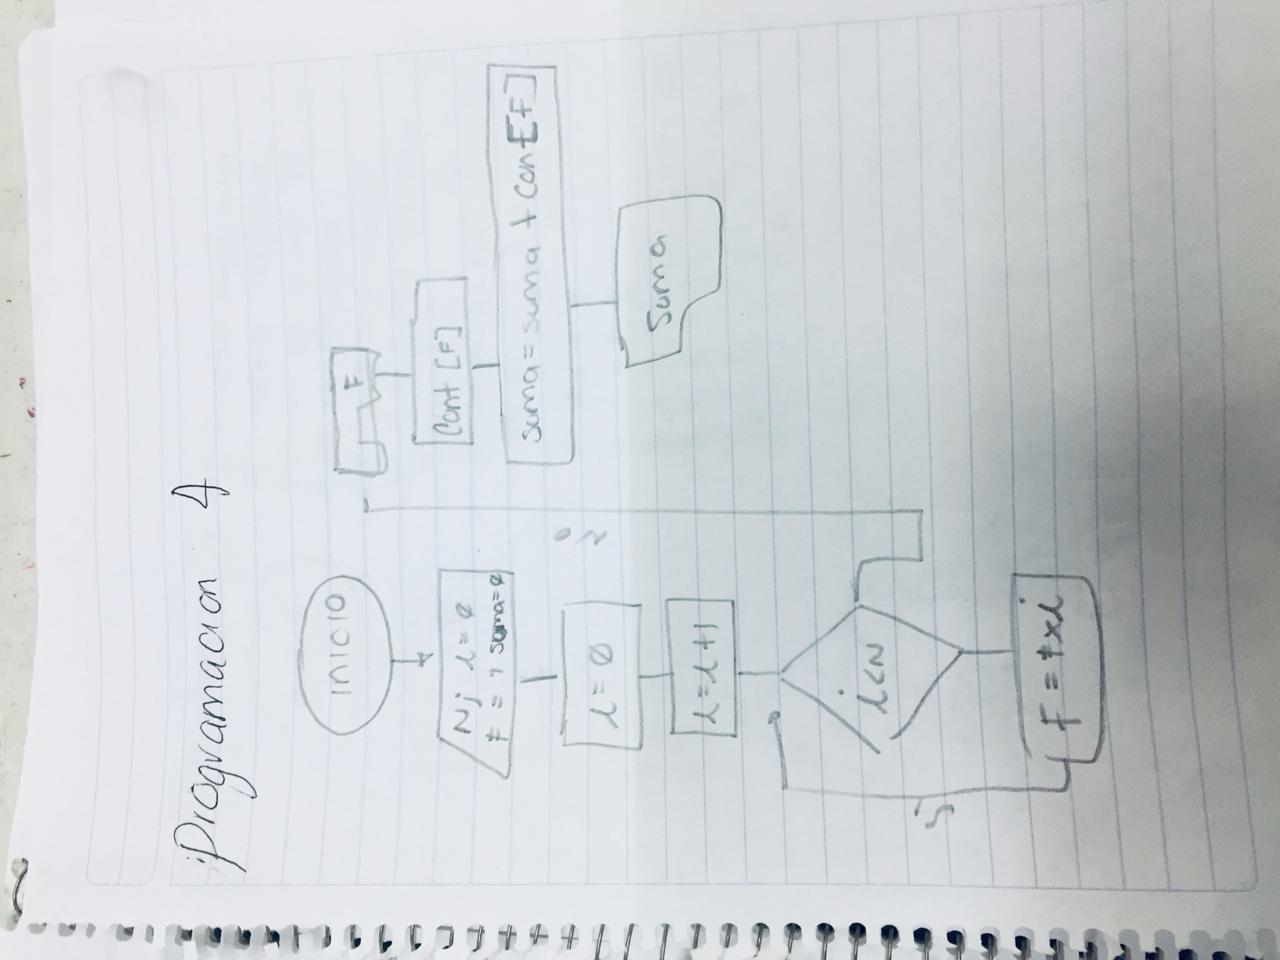 Programacion 4
INICIO
N; i=0
F = 1 suma=0
i=0
i=i+1
i<N
F = f x i
F
Cont [F]
Suma=suma + Cont[F]
Suma